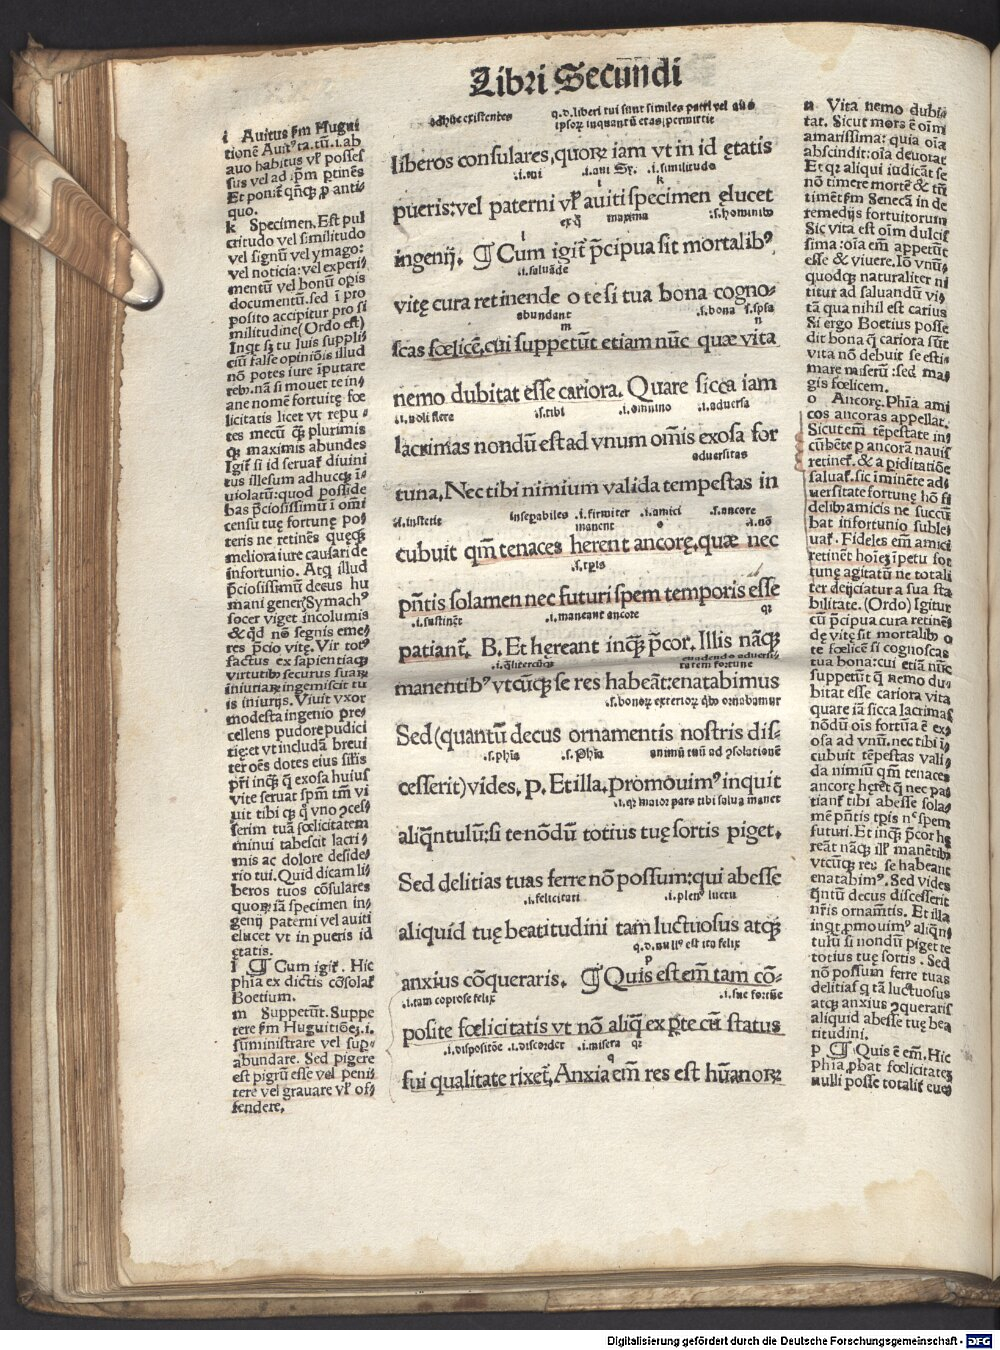 Libri Secundi
i Avitus ẜm Hugui
tionē Auitꝰ.ta.tū.i.ab
auo habitus vł posses
sus vel ad ip̄m ꝑtinēs
Et ponit̄ qn̄qꝫ ꝓ anti⸗
quo.
k Specimen. Est pul
critudo vel similitudo
vel signū vel ymago:
vel noticia: vel experi⸗
mentū vel bonū opis
documentū. sed ī pro
posito accipitur pro si
militudine (Ordo est)
ciū false opiniōis illud
nō potes iure īputare
reb. nā si mouet te in⸗
ane nomē fortuitę fœ
licitatis licet vt repu⸗
tes mecū qꝫ plurimis
qꝫ maximis abundes
Igit̄ si id seruat̄ diuini
tus illesum adhucqꝫ ī⸗
uiolatū: quod posside
bas p̄ciosissimū ī om̄i
censu tuę fortunę po⸗
teris ne retinēs quęqꝫ
meliora iure causari de
infortunio. Atqꝫ illud
p̄ciosissimū decus hu
mani generꝭ Symachꝰ
socer viget incolumis
& qd̄ nō segnis eme⸗
res p̄cio vitę. Vir totꝰ
factus ex sapientiaqꝫ
virtutibꝰ securus suarꝝ
iniuriarꝝ ingemiscit tu
is iniurijs. Viuit vxor
modesta ingenio pre⸗
cellens pudore pudici
tię: et vt includā breui
ter oēs dotes eius sil̄is
pr̄i inqꝫ q̄ exosa huius
vite seruat spm̄ tm̄ vi
uit tibi qꝫ q̄ vno ꝯces⸗
serim tuā fœlicitatem
minui tabescit lacri⸗
mis ac dolore deside⸗
rio tui. Quid dicam li⸗
beros tuos cōsulares
quorꝝ iā specimen in⸗
genij paterni vel auiti
elucet vt in pueris id
ętatis.
l ¶ Cum igit̄. Hic
ph̄ia ex dictis cōsolat̄
Boetium.
m Suppetūt. Suppe
tere ẜm Huguitiōeꝫ. i.
sūministrare vel suꝑ⸗
abundare. Sed pigere
est pigrū esse vel peni⸗
tere vel grauare vł of⸗
fendere.
adhuc existentes
q.d. liberi tui sunt similes patri vel auo
liberos consulares, quorꝝ iam vt in id ętatis
.i. similitudo
pueris: vel paterni vł auiti specimen ęlucet
maxima .s. hominibꝰ
ingenij. ¶ Cum igit̄ p̄cipua sit mortalibꝰ
.i. saluāde
vitę cura retinende o te si tua bona cogno⸗
abundant .s. bona
scas fœlicē, cui suppetūt etiam nūc quæ vita
nemo dubitat esse cariora. Quare sicca iam
.i. noli flere .s. tibi .i. omnino .i. aduersa
lacrimas nondū est ad vnum om̄is exosa for
aduersitas
tuna. Nec tibi nimium valida tempestas in
inseparabiles .i. firmiter .i. amici .s. ancore
manent
cubuit qm̄ tenaces herent ancorę, quæ nec
p̄ntis solamen nec futuri spem temporis esse
.i. sustinēt .i. maneant ancore qꝛ
patiant̄. B. Et hęreant inqꝫ p̄cor. Illis nāqꝫ
manentibꝰ vtcūqꝫ se res habeāt: enatabimus
Sed (quantū decus ornamentis nostris dis⸗
.s. ph̄ia .s. Ph̄ia animū tuū ad ꝯsolationē
cesserit) vides. P. Et illa. Promouimꝰ inquit
.i. qꝛ maior pars tibi salua manet
aliqn̄tulū: si te nōdū totius tuę sortis piget.
Sed delitias tuas ferre nō possum: qui abesse
.i. felicitati .i. plenꝰ luctu
aliquid tuę beatitudini tam luctuosus atqꝫ
q.d. nullꝰ est ita felix
anxius cōqueraris. ¶ Quis est em̄ tam cō⸗
.i. tam copiose felix .i. sue fortūe
posite fœlicitatis vt nō aliq̄ ex ꝑte cū status
.i. dispositōe .i. discordet .i. misera qꝛ
sui qualitate rixet̄. Anxia em̄ res est hūanorꝝ
n Vita nemo dubi⸗
tat. Sicut mors ē oīm
amarissima: quia oīa
abscindit: oīa deuorat
Et qꝛ aliqui iudicāt se
nō timere mortē & tn̄
timēt ẜm Senecā in de
remedijs fortuitorum
Sic vita est oīm dulcis
sima: oīa em̄ appetūt
esse & viuere. Iō vnū⸗
quodqꝫ naturaliter ni
titur ad saluandū vi⸗
tā qua nihil est carius
Si ergo Boetius posse
dit bona q̄ cariora sūt
vita nō debuit se esti⸗
mare miserū: sed ma⸗
gis fœlicem.
o Ancorę. Ph̄ia ami
cos ancoras appellat.
Sicut em̄ tēpestate in⸗
cūbēte ꝑ ancorā nauis
retinet̄. & a ꝑiditatiōe
saluat̄. sic iminēte ad⸗
uersitate fortunę hō fi
delibꝰ amicis ne succū
bat infortunio suble⸗
uat̄. Fideles em̄ amici
retinēt hoīeꝫ īpetu for
tunę agitatū ne totali
ter deijciatur a sua sta
bilitate. (Ordo) Igitur
cū p̄cipua cura retinē⸗
dę vitę sit mortalibꝰ o
te fœlicē si cognoscas
tua bona: cui etiā nūc
suppetūt q̄ nemo du⸗
bitat esse cariora vita
quare iā sicca lacrimas
nōdū oīs fortūa ē ex⸗
osa ad vnū. nec tibi ī⸗
cubuit tēpestas vali⸗
da nimiū qm̄ tenaces
ancorę herēt q̄ nec pa
tiant̄ tibi abesse sola⸗
mē p̄ntis tp̄is nec spem
futuri. Et inqꝫ p̄cor hę
reāt nāqꝫ illꝭ manētibꝰ
vtcūqꝫ res se habeant
enatabimꝰ. Sed vides
qn̄tū decus discesserit
nr̄is ornamētis. Et illa
inqt ꝓmouimꝰ aliqn̄⸗
tulū si nondū piget te
totius tuę sortis. Sed
nō possum ferre tuas
delitias q̄ tā luctuosus
atqꝫ anxius ꝯqueraris
aliquid abesse tuę bea
titudini.
p ¶ Quis ē em̄. Hic
ph̄ia ꝓbat fœlicitateꝫ
nulli posse totalit̄ eue⸗
Digitalisierung gefördert durch die Deutsche Forschungsgemeinschaft - DFG